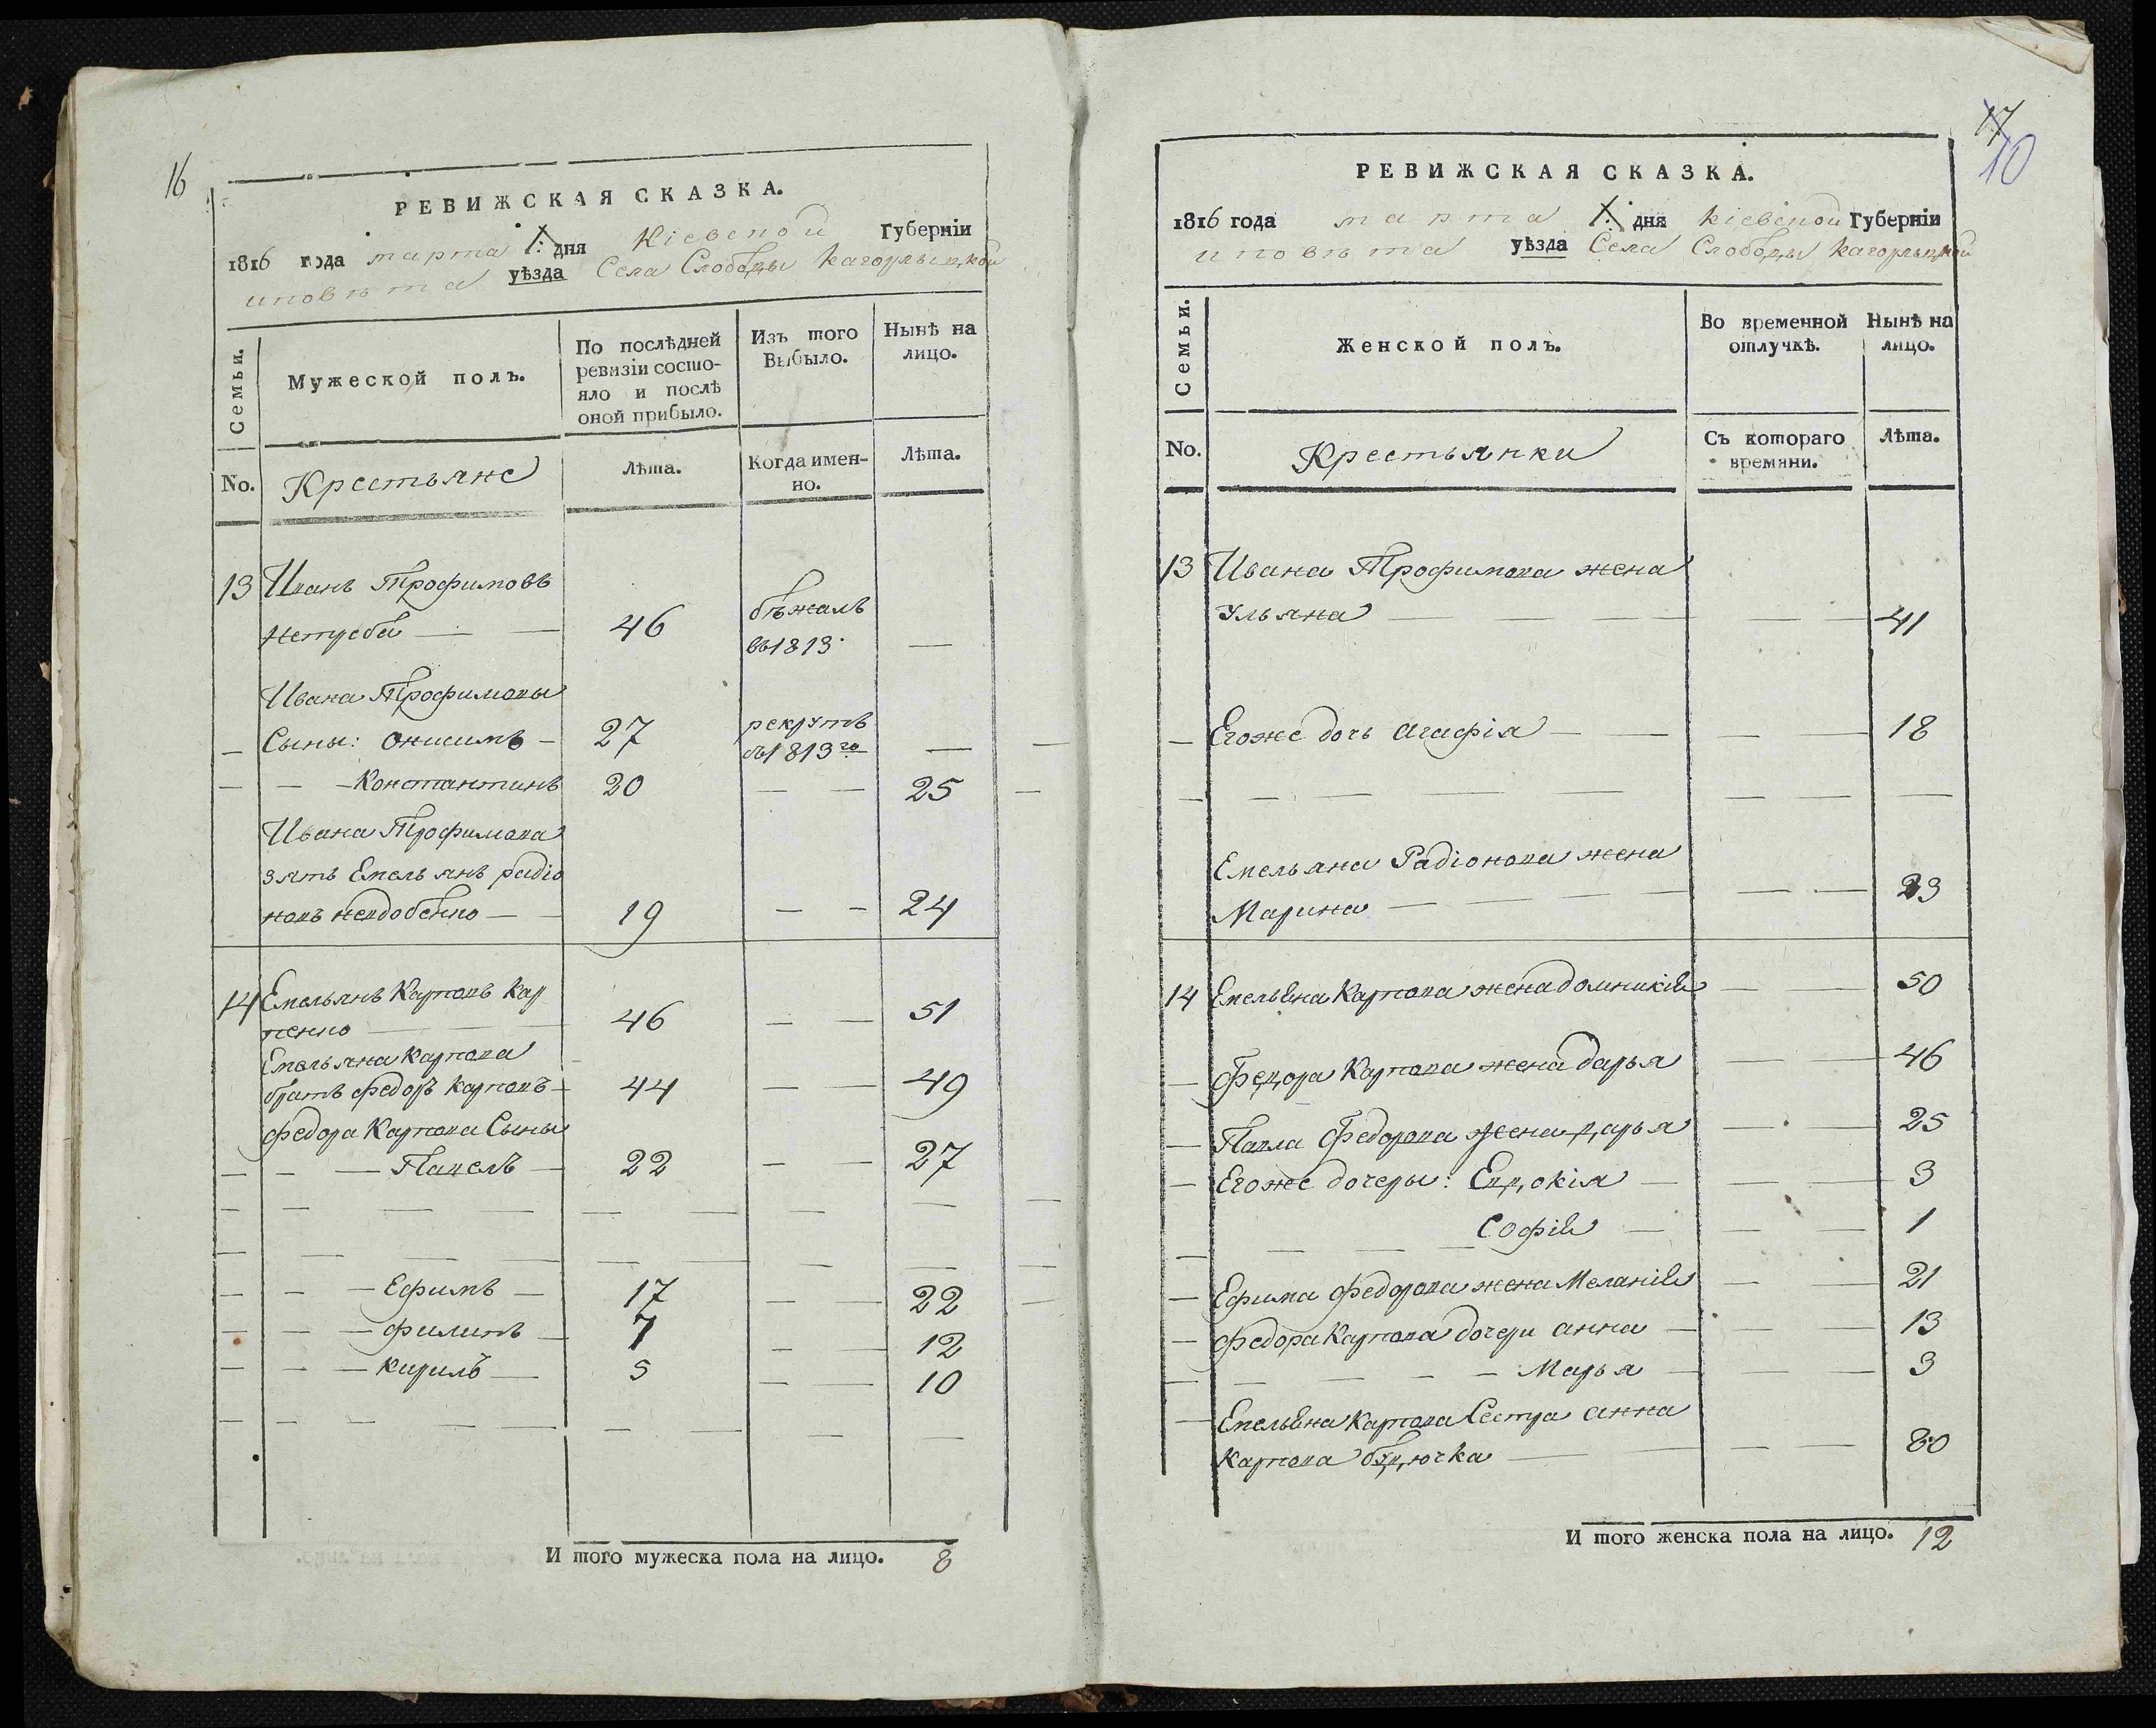 16
РЕВИЖСКАЯ СКАЗКА.
1816 года марта 1: дня Кіевской Губерніи
иповѣта уѣзда Села Слободы Кагорлыцкой
Семьи.
Мужеской полъ.
По послѣдней
ревизіи состо-
яло и послѣ
оной прибыло.
Изъ того
Выбыло.
Нынѣ на
лицо.
No.
Крестьяне
Лѣта.
Когда имен-
но.
Лѣта.
13 Иванъ Трофимовъ
Нетреба — — 46 бѣжалъ
въ 1813. —
Ивана Трофимовы
— Сыны: Онисимъ — 27 рекрутъ
въ 1813го —
— — — Константинъ 20 — — 25
Ивана Трофимова
зять Емельянъ радіо
новъ — — 19 — — 24
14 Емельянъ Карповъ Кар
пенко — 46 — — 51
Емельяна Карпова
братъ федоръ карповъ — 44 — — 49
федора Карпова Сыны
— — — Павелъ — 22 — — 27
— — — Ефимъ — 17 — — 22
— — — филипъ — 7 — — 12
— — — кирилъ — 5 — — 10
И того мужеска пола на лицо. 8
17
10
РЕВИЖСКАЯ СКАЗКА.
1816 года марта 1: дня кіевской Губерніи
иповѣта уѣзда Села Слободы кагорлыцкой
Семьи.
Женской полъ.
Во временной
отлучкѣ.
Нынѣ на
лицо.
No.
Крестьянки
Съ котораго
времяни.
Лѣта.
13 Ивана Трофимова жена
Ульяна — — — — — — 41
— Егоже дочь агафія — — — — 18
Емельяна Радіонова жена
Марина — — — — — — 23
14 Емельяна Карпова жена домникія — — 50
— Федора Карпова жена дарья — — 46
— Павла Федорова жена дарья — — 25
— Егоже дочеры: Евдокія — — — 3
— — — — Софія — — — 1
— Ефима федорова жена Меланія — — 21
— федора Карпова дочери анна — — — 13
— — — — — Марья — — — 3
— Емельяна Карпова Сестра анна
Карпова — — — 80
И того женска пола на лицо. 12